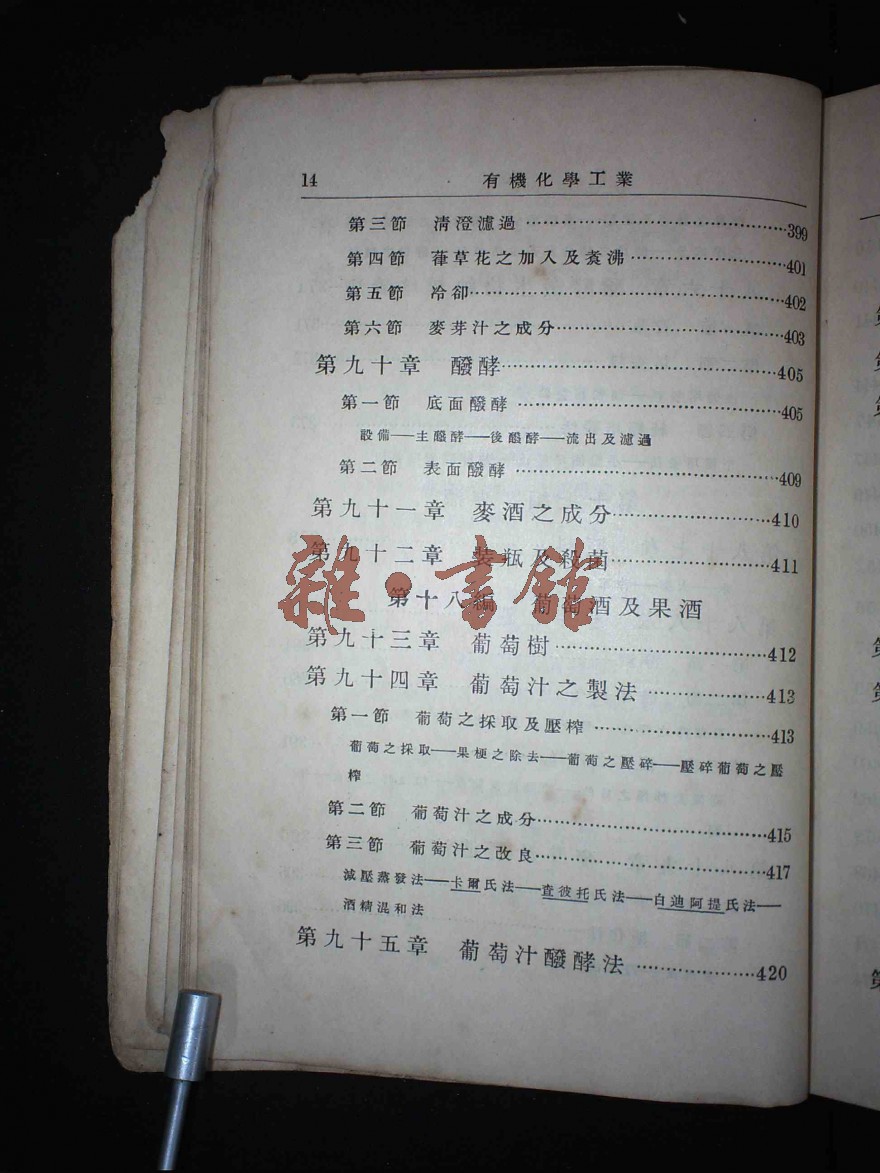 14 有機化學工業
第三節 淸澄濾過……399
第四節 葎草花之加入及煑沸……401
第五節 冷卻……402
第六節 麥芽汁之成分……403
第九十章 醱酵……405
第一節 底面醱酵……405
設備——主醱酵——後醱酵——流出及濾過
第二節 表面醱酵……409
第九十一章 麥酒之成分……410
第九十二章 裝瓶及殺菌……411
雜·書館
第十八編 葡萄酒及果酒
第九十三章 葡萄樹……412
第九十四章 葡萄汁之製法……413
第一節 葡萄之採取及壓榨……413
葡萄之採取——果梗之除去——葡萄之壓碎——壓碎葡萄之壓
榨
第二節 葡萄汁之成分……415
第三節 葡萄汁之改良……417
減壓蒸發法——卡爾氏法——查彼托氏法——白迪阿提氏法——
酒精混和法
第九十五章 葡萄汁醱酵法……420